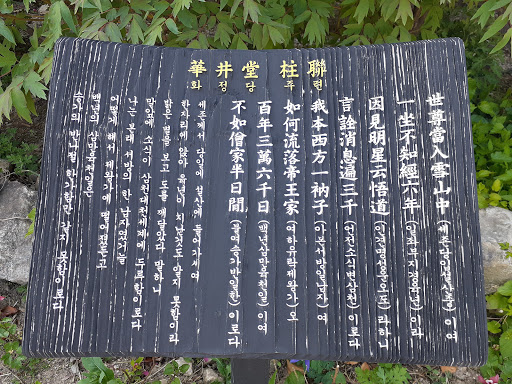 華井堂 柱聯
화정당 주련
世尊當入雪山中 (세존당입설산중) 이여
一坐不知經六年 (일좌부지경육년) 이라
因見明星云悟道 (인견명성운오도) 라하니
言詮消息遍三千 (언전소식변삼천) 이로다
我本西方一衲子 (아본서방일납자) 여
如何流落帝王家 (여하유락제왕가) 오
百年三萬六千日 (백년삼만육천일) 이여
不如僧家半日閒 (불여승가반일한) 이로다
세존께서 당입에 설산에 들어가셔여
한자리에 앉아 육년이 지난것도 알지 못함이라
밝은 별을 보고 도를 깨달았다 말하니
말씀에 소식이 삼천대천세계에 두루함이로다
나는 본래 서방의 한 납자였거늘
어떻게해서 제왕가에 떨어졌는고
백년의 삼만육천일은
승가의 반나절 한가함만 같지 못함이로다